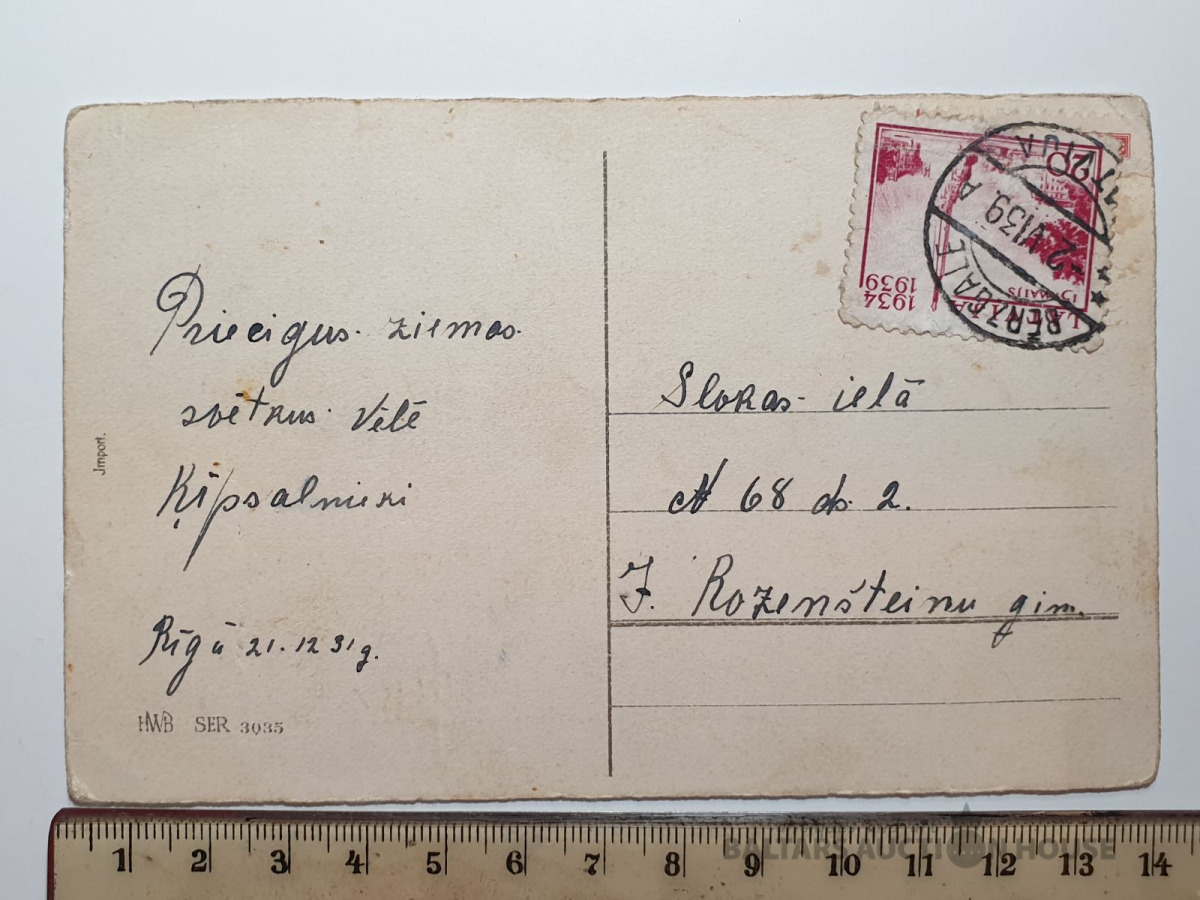 Priecigus ziemas
svētkus vēlē
Ķīpsalnieki
Rīgā 21.12 31 g.
HWB SER 3035
Jmport.
20
1934
1939
15 MAIJS
LATVIJA
BĒRZGALE
-2. VI 39 A
LATVIJA
Slokas ielā
N 68 dz. 2.
J. Rozenšteinu gim.
1 2 3 4 5 6 7 8 9 10 11 12 13 14
BALTARS AUCTION HOUSE